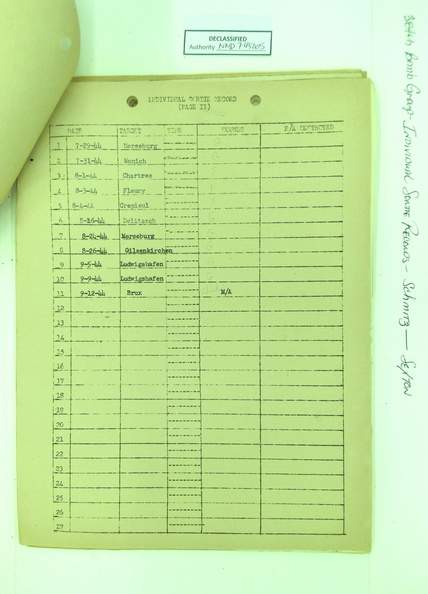 DECLASSIFIED
Authority NND 745005
INDIVIDUAL SORTIE RECORD
(PAGE II)
DATE TARGET TIME E/A DESTROYED
1 7-29-44 Merseburg
2 7-31-44 Munich
3 8-1-44 Chartres
4 8-3-44 Fleury
5 8-4-44 Crepieul
6 8-16-44 Delitzsch
7 8-24-44 Merseburg
8 8-26-44 Gilsenkirchen
9 9-5-44 Ludwigshafen
10 9-9-44 Ludwigshafen
11 9-12-44 Brux M/A
12
13
14
15
16
17
18
19
20
21
22
23
24
25
26
27
Bomb Group - Individual Sortie Records - Schmitz — Sexton